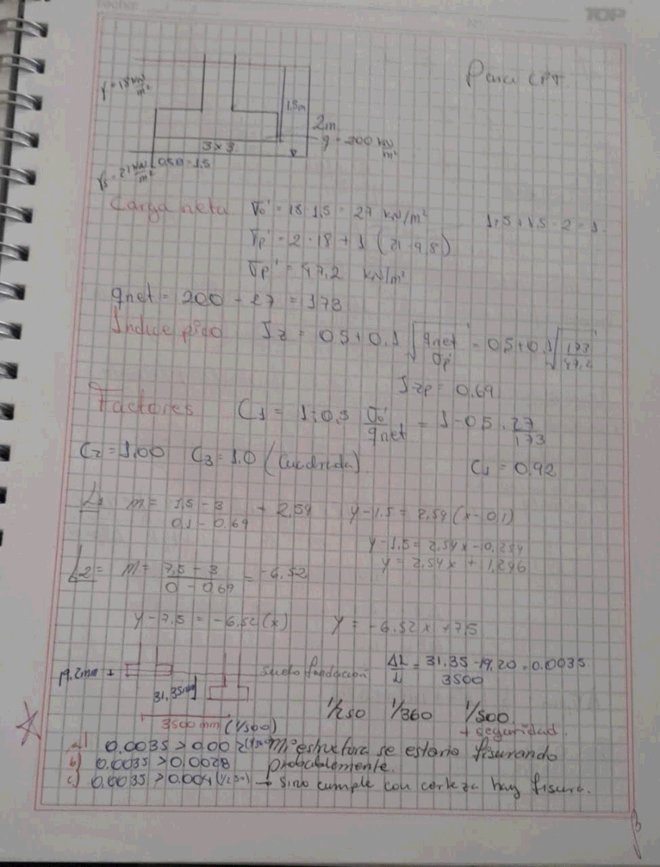 Fecha:
TOP
Para CPT
γ = 18 kN/m²
1.5m
2m
q = 200 kN/m²
3x3
0.5B = 1.5
γs = 21 kN/m²
Carga neta σo' = 18·1.5 = 27 kN/m²
1.5 + 1.5 - 2 = 1
σp' = 2·18 + 1 (21-9.8)
σp' = 47.2 kN/m²
qnet = 200 - 27 = 173
Induce pico Iz = 0.5 + 0.1 √(qnet/σp') = 0.5 + 0.1 √(173/47.2)
Izp = 0.69
Factores C1 = 1-0.5 σo'/qnet = 1-0.5 · 27/173
C2 = 1.00 C3 = 1.0 (Cuadrada)
C1 = 0.92
L1 m = (1.5 - 3)/(0.1 - 0.69) = 2.54 y-1.5 = 2.54 (x-0.1)
y-1.5 = 2.54x - 0.254
y = 2.54x + 1.246
L2 = m = (7.5 - 3)/(0 - 0.69) = -6.52
y-7.5 = -6.52(x) y = -6.52x + 7.5
19.2mm
suelo fundación
ΔL/L = (31.35 - 19.20)/3500 = 0.0035
31.35mm
3500 mm (1/500)
1/250 1/360 1/500
+ seguridad.
a) 0.0035 > 0.002 (1/500) Mi estructura se estaria fisurando
b) 0.0035 > 0.0028 probablemente.
c) 0.0035 > 0.004 (1/250) → sino cumple con certeza hay fisura.